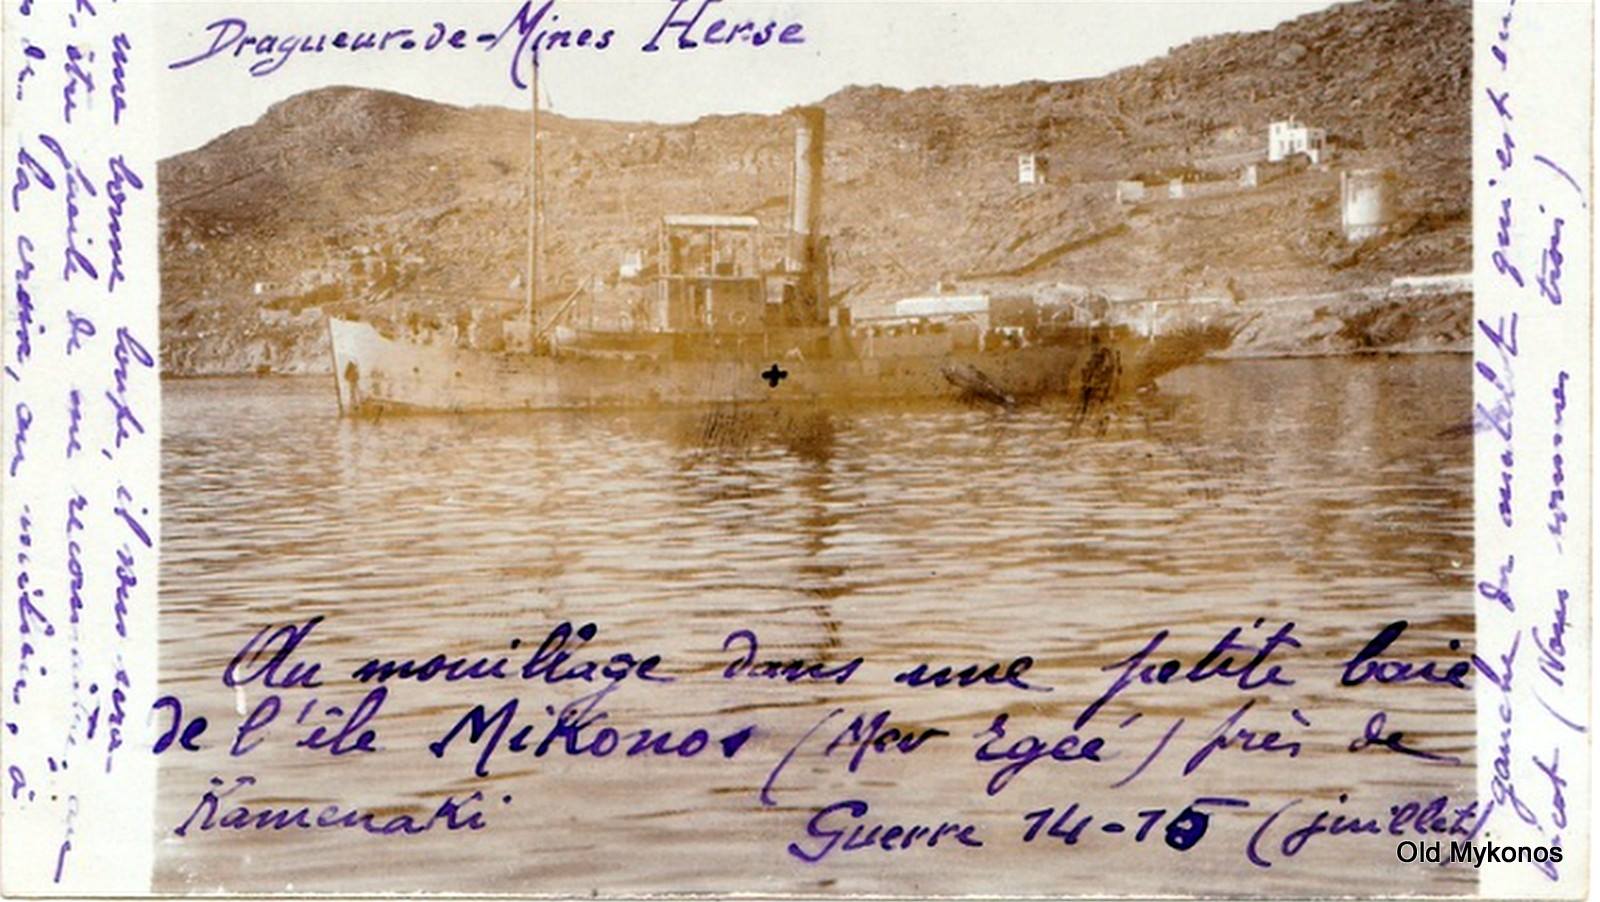 Dragueur-de-Mines Herse
Au mouillage dans une petite baie
de l'île MiKonos (Mer Egée) près de
KamenaKi
Guerre 14-15 (juillet)
une bonne loupe, il vous sera
être facile de me reconnaître
la croix, au milieu, à
gauche du matelot qui est en
(Nous sommes trois)
Old Mykonos